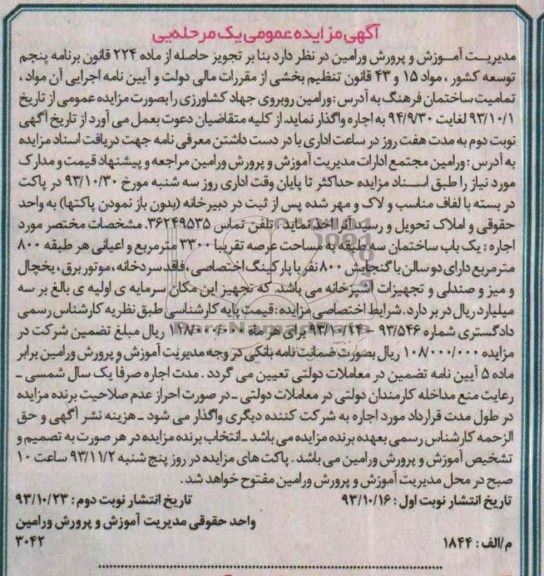 آگهی مزایده عمومی یک مرحله‌یی
مدیریت آموزش و پرورش ورامین در نظر دارد بنا بر تجویز حاصله از ماده ۲۲۴ قانون برنامه پنجم
توسعه کشور ، مواد ۱۵ و ۴۳ قانون تنظیم بخشی از مقررات مالی دولت و آیین نامه اجرایی آن مواد ،
تمامیت ساختمان فرهنگ به آدرس : ورامین روبروی جهاد کشاورزی را بصورت مزایده عمومی از تاریخ
۹۳/۱۰/۱ لغایت ۹۴/۹/۳۰ به اجاره واگذار نماید. از کلیه متقاضیان دعوت بعمل می آورد از تاریخ آگهی
نوبت دوم به مدت هفت روز در ساعت اداری با در دست داشتن معرفی نامه جهت دریافت اسناد مزایده
به آدرس : ورامین مجتمع ادارات مدیریت آموزش و پرورش ورامین مراجعه و پیشنهاد قیمت و مدارک
مورد نیاز را طبق اسناد مزایده حداکثر تا پایان وقت اداری روز سه شنبه مورخ ۹۳/۱۰/۳۰ در پاکت
در بسته با لفاف مناسب و لاک و مهر شده پس از ثبت در دبیرخانه (بدون باز نمودن پاکتها) به واحد
حقوقی و املاک تحویل و رسید اخذ نماید . تلفن تماس ۳۶۲۴۹۵۳۵. مشخصات مختصر مورد
اجاره : یک باب ساختمان سه طبقه به مساحت عرصه تقریبا ۳۳۰۰ مترمربع و اعیانی هر طبقه ۸۰۰
متر مربع دارای دو سالن با گنجایش ۸۰۰ نفر با پارکینگ اختصاصی ، فاقد سردخانه ، موتور برق ، یخچال
و میز و صندلی و تجهیزات آشپزخانه می باشد که تجهیز این مکان سرمایه ی اولیه ی بالغ بر سه
میلیارد ریال در بر دارد. شرایط اختصاصی مزایده : قیمت پایه کارشناسی طبق نظریه کارشناس رسمی
دادگستری شماره ۹۳/۵۴۶ - برای هر ماه ریال مبلغ تضمین شرکت در
مزایده ۱۰۸/۰۰۰/۰۰۰ ریال بصورت ضمانت نامه بانکی در وجه مدیریت آموزش و پرورش ورامین برابر
ماده ۵ آیین نامه تضمین در معاملات دولتی تعیین می گردد . مدت اجاره صرفا یک سال شمسی ـ
رعایت منع مداخله کارمندان دولتی در معاملات دولتی ـ در صورت احراز عدم صلاحیت برنده مزایده
در طول مدت قرارداد مورد اجاره به شرکت کننده دیگری واگذار می شود ـ هزینه نشر آگهی و حق
الزحمه کارشناس رسمی بعهده برنده مزایده می باشد ـ انتخاب برنده مزایده در هر صورت به تصمیم و
تشخیص آموزش و پرورش ورامین می باشد . پاکت های مزایده در روز پنج شنبه ۹۳/۱۱/۲ ساعت ۱۰
صبح در محل مدیریت آموزش و پرورش ورامین مفتوح خواهد شد.
تاریخ انتشار نوبت اول : ۹۳/۱۰/۱۶ تاریخ انتشار نوبت دوم : ۹۳/۱۰/۲۳
واحد حقوقی مدیریت آموزش و پرورش ورامین
م/الف : ۱۸۴۴ ۳۰۴۲